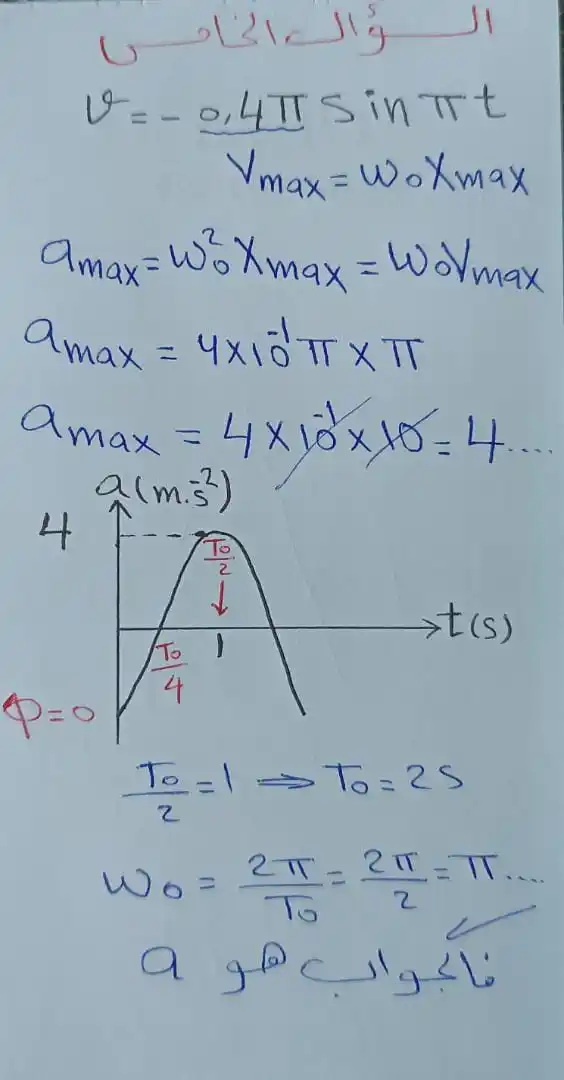 السؤال الخامس
v = - 0,4π sin πt
Vmax = ω₀Xmax
amax = ω₀²Xmax = ω₀Vmax
amax = 4×10⁻¹π × π
amax = 4×10⁻¹×10 = 4....
a(m.s⁻²)
4
T₀/2
t(s)
T₀/4
1
φ=0
T₀/2 = 1 ⟹ T₀ = 2S
ω₀ = 2π/T₀ = 2π/2 = π....
فالجواب هو a